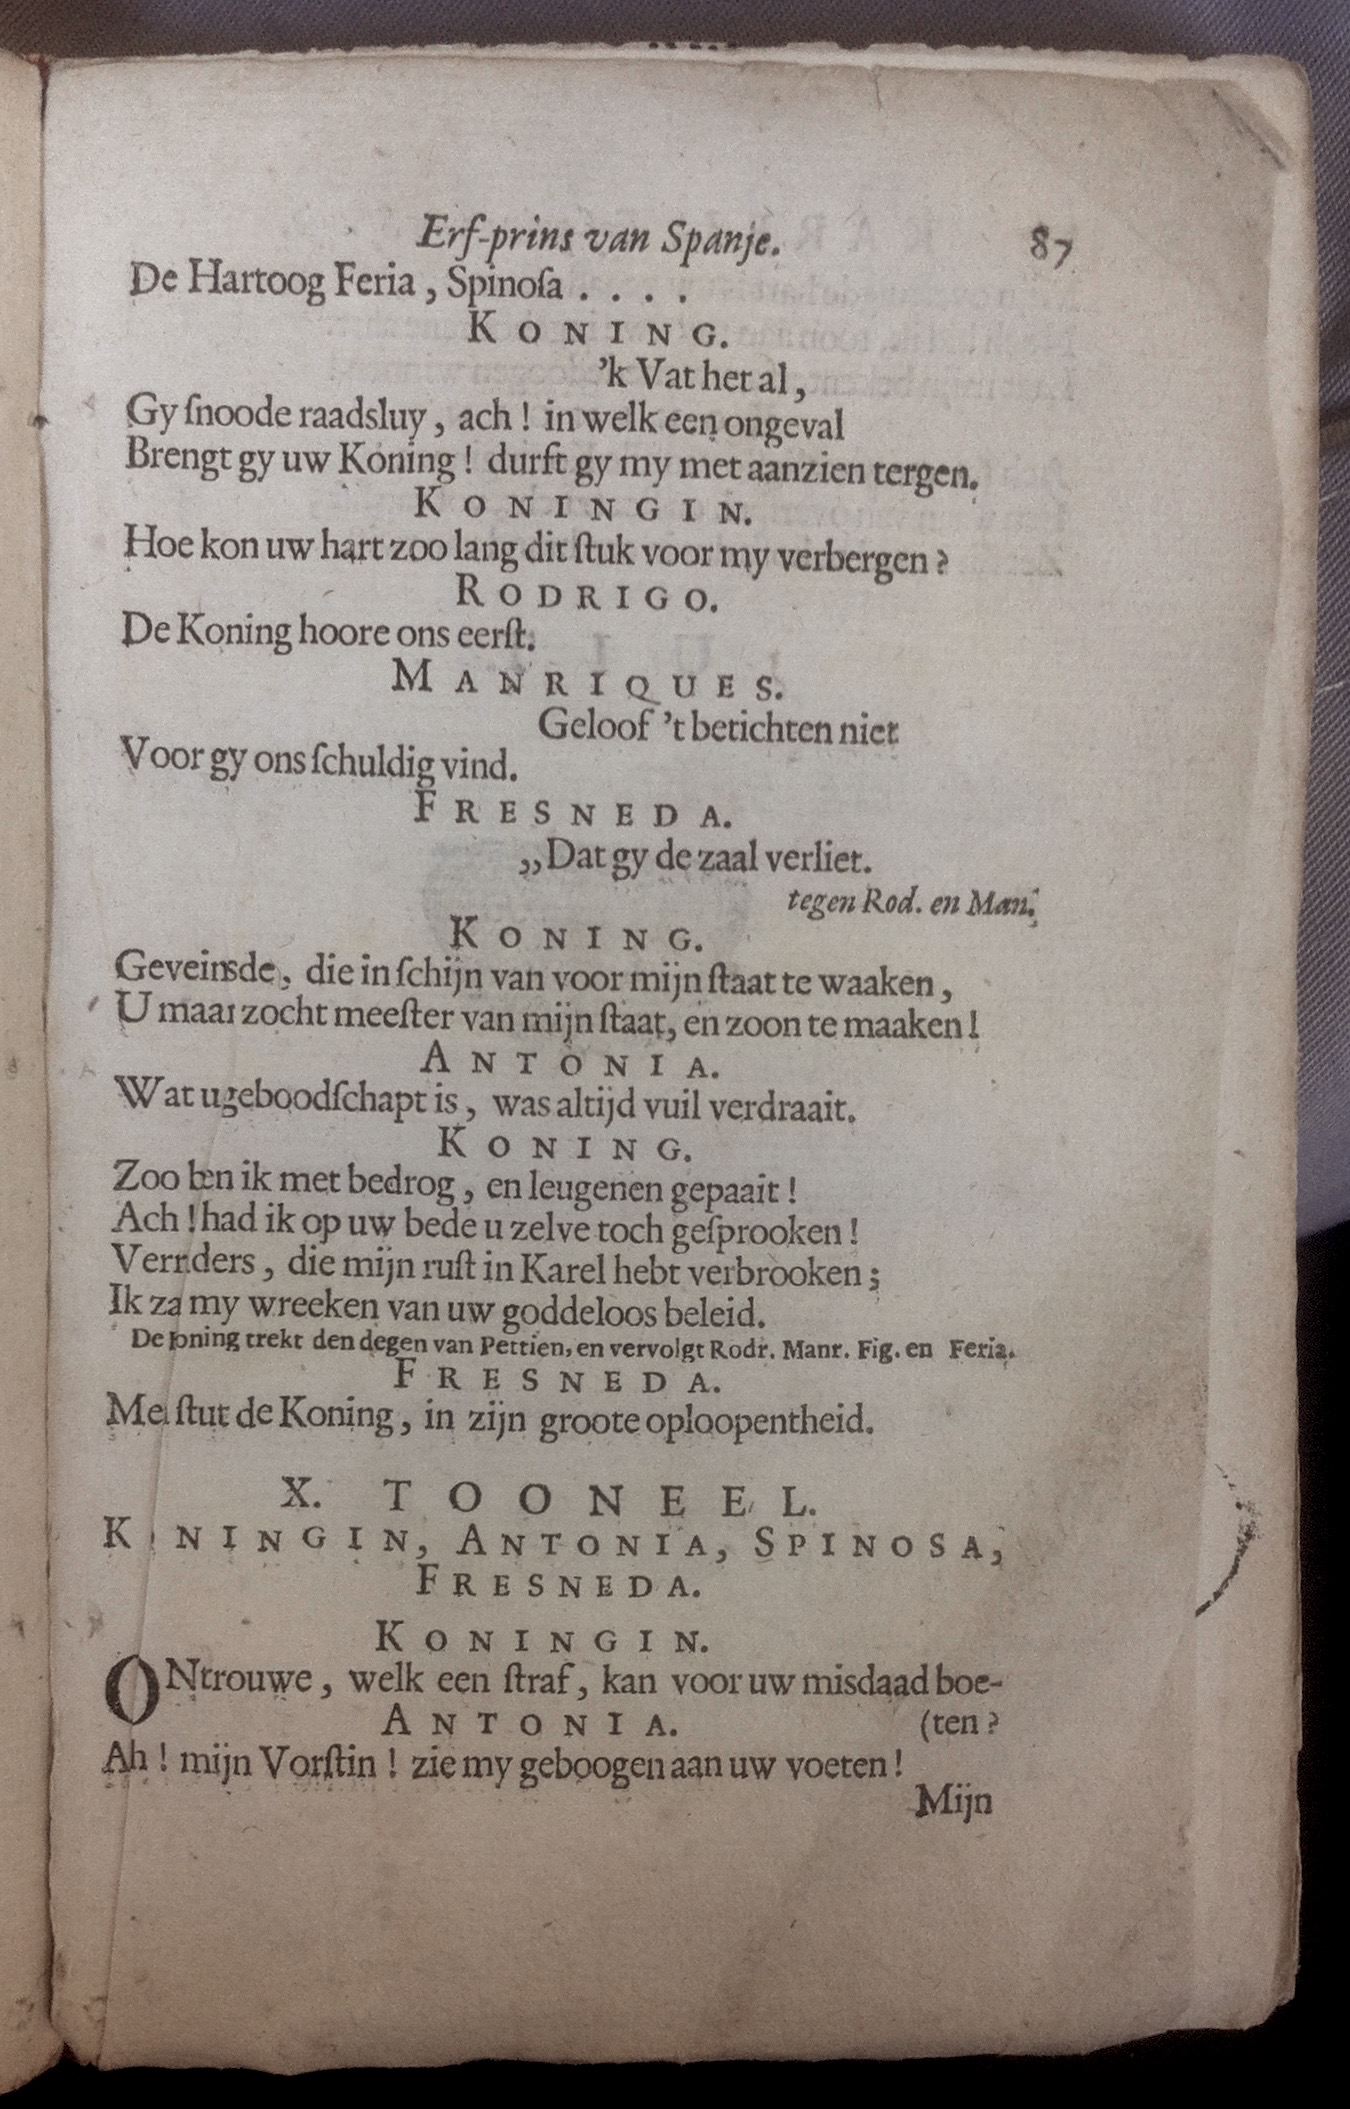 Erf-prins van Spanje. 87
De Hartoog Feria, Spinoſa . . . .
KONING.
'k Vat het al,
Gy ſnoode raadsluy, ach! in welk een ongeval
Brengt gy uw Koning! durft gy my met aanzien tergen.
KONINGIN.
Hoe kon uw hart zoo lang dit ſtuk voor my verbergen?
RODRIGO.
De Koning hoore ons eerſt.
MANRIQUES.
Geloof 't berichten niet
Voor gy ons ſchuldig vind.
FRESNEDA.
„Dat gy de zaal verliet.
tegen Rod. en Man.
KONING.
Geveinsde, die in ſchijn van voor mijn ſtaat te waaken,
U maar zocht meeſter van mijn ſtaat, en zoon te maaken!
ANTONIA.
Wat u geboodſchapt is, was altijd vuil verdraait.
KONING.
Zoo ben ik met bedrog, en leugenen gepaait!
Ach! had ik op uw bede u zelve toch geſprooken!
Verrders, die mijn ruſt in Karel hebt verbrooken;
Ik za my wreeken van uw goddeloos beleid.
De koning trekt den degen van Pettien, en vervolgt Rodr. Manr. Fig. en Feria.
FRESNEDA.
Men ſtut de Koning, in zijn groote oploopentheid.
X. TOONEEL.
KONINGIN, ANTONIA, SPINOSA,
FRESNEDA.
KONINGIN.
ONtrouwe, welk een ſtraf, kan voor uw misdaad boe-
ANTONIA. (ten?
Ah! mijn Vorſtin! zie my geboogen aan uw voeten!
Mijn